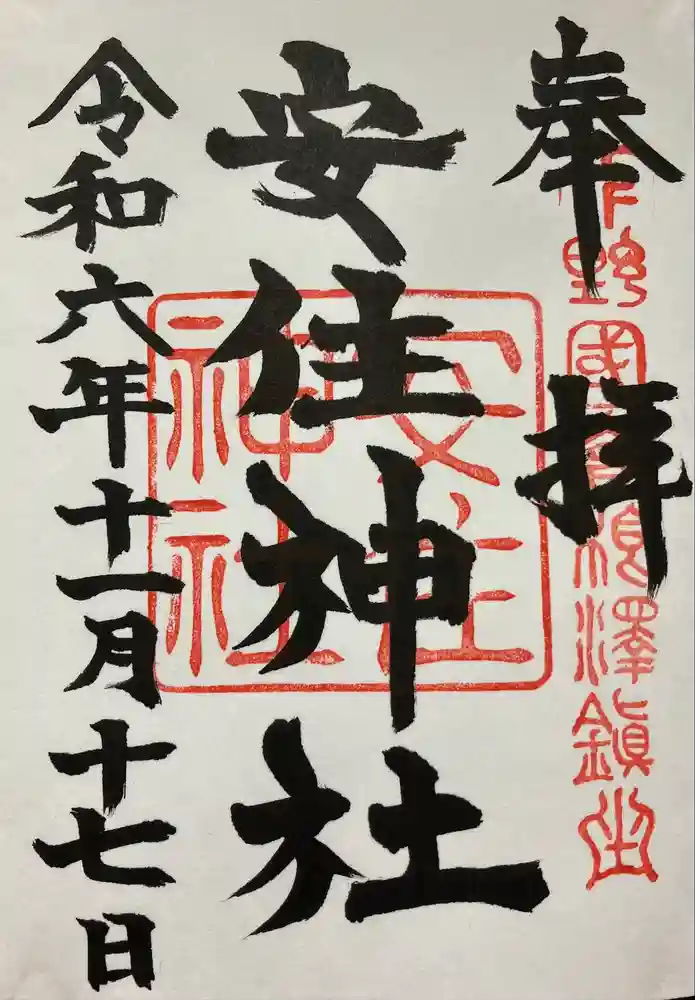 奉拝
下野國高根澤鎮坐
安住神社
安住
神社
令和六年十一月十七日